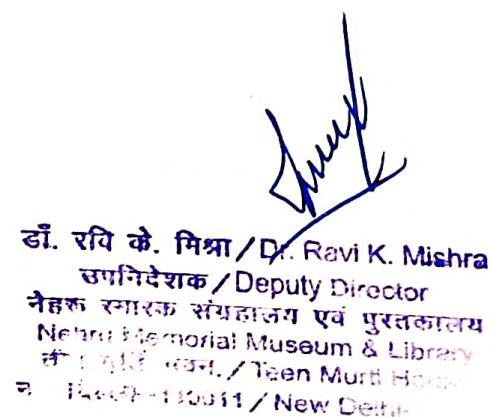 डॉ. रवि के. मिश्रा / Dr. Ravi K. Mishra
उपनिदेशक / Deputy Director
नेहरू स्मारक संग्रहालय एवं पुस्तकालय
Nehru Memorial Museum & Library
भवन. / Teen Murti
110011 / New Delhi-